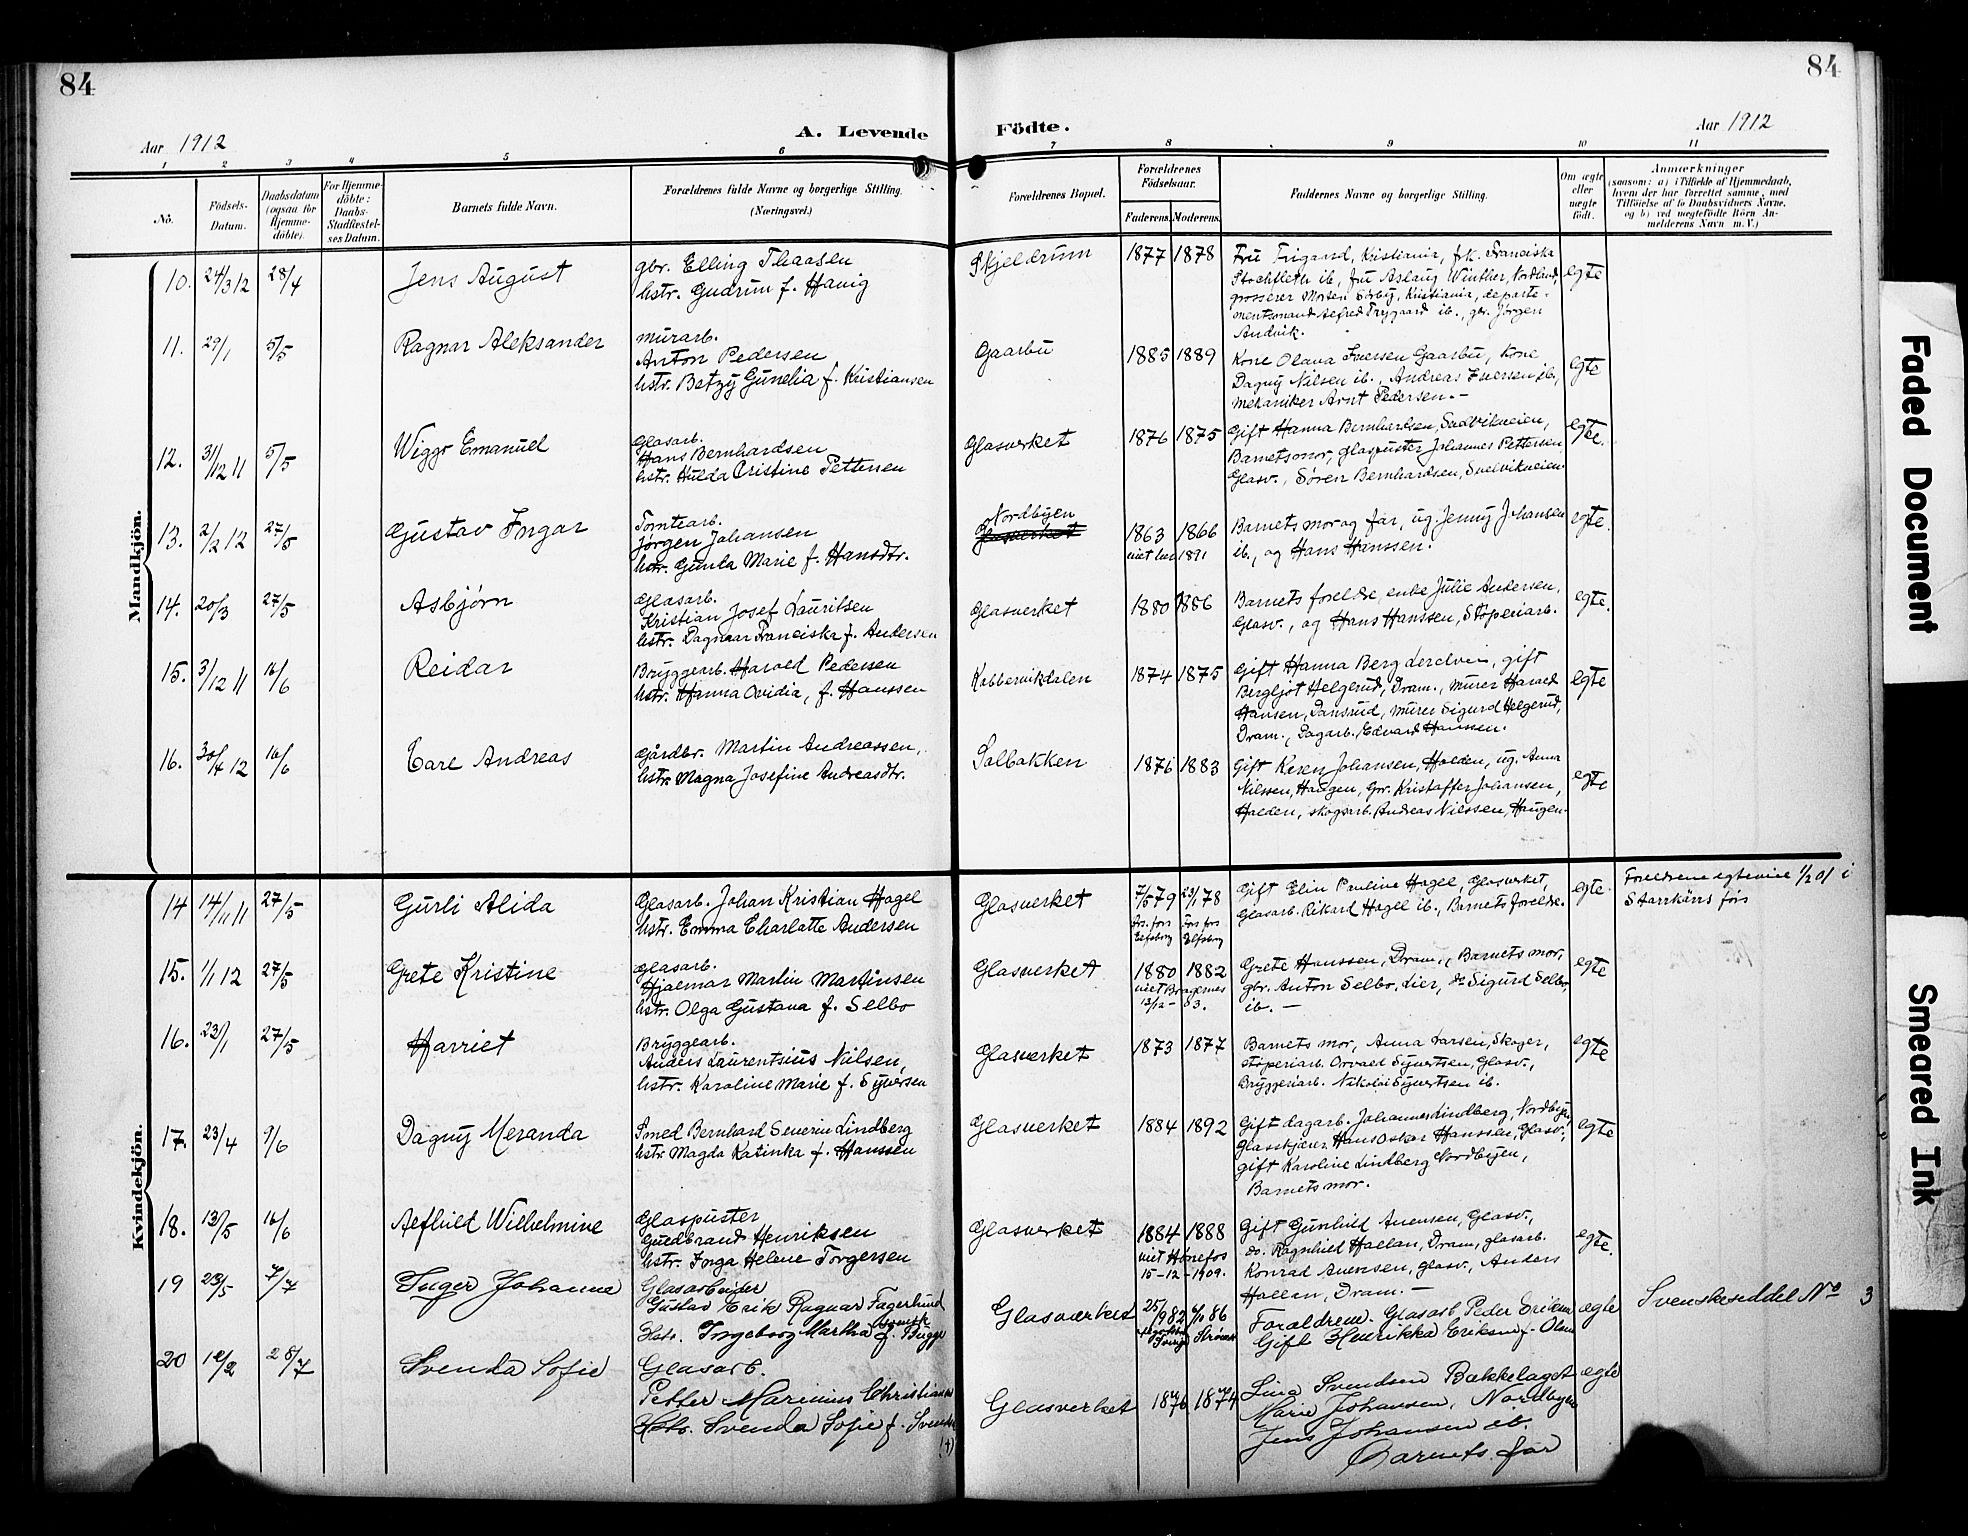 84
84
Aar 1912
A. Levende
Födte.
Aar 1912
1 2 3 4 5 6 7 8 9 10 11
No.
Födsels-
Datum.
Daabsdatum
(ogsaa for
Hjemme-
döbte).
For Hjemme-
döbte:
Daabs-
Stadfæstel-
ses Datum.
Barnets fulde Navn.
Forældrenes fulde Navne og borgerlige Stilling.
(Næringsvei.)
Forældrenes Bopæl.
Forældrenes
Födselsaar.
Faderens. Moderens.
Faddernes Navne og borgerlige Stilling.
Om ægte
eller
uægte
födt.
Anmærkninger
(saasom: a) i Tilfælde af Hjemmedaab,
hvem der har forrettet samme, med
Tilföielse af to Daabsvidners Navne,
og b) ved uegtefödte Börn An-
melderens Navn m. V.)
Mandkjön.
10. 24/3 12 28/4 Jens August
gbr. Elling Thaasen
hstr. Gudrun f. Hanig
Skjeldrum 1877 1878
Fru Frigaard, Kristiania, frk. Franciska
Stockfleth ib, fru Aslaug Winther, Nordland,
grosserer Morten Sörby, Kristiania, departe-
mentsmand Alfred Frygaard ib., gbr. Jörgen
Andvik.
egte
11. 29/1 5/5 Ragnar Aleksander
murarb.
Anton Pedersen
hstr. Betzy Gunelia f. Kristiansen
Gaarbu 1885 1889
Kone Olava Iversen Gaarbu, kone
Dagny Nilsen ib., Andreas Iversen ib.,
mekaniker Arnt Pedersen. -
egte
12. 31/12 11 5/5 Wiggo Emanuel
Glasarb.
Hans Bernhardsen
hstr. Hulda Cristine Pettersen
Glasverket 1876 1875
Gift Hanna Bernhardsen, Svelvikveien,
Barnets mor, glaspuster Johannes Pettersen
Glasv., Sören Bernhardsen, Svelvikveien.
egte.
13. 2/2 12 27/5 Gustav Ingar
Tomtearb.
Jørgen Johansen
hstr. Gunda Marie f. Hansdtr.
Nordbyen
Glasverket
1863 1866
viet her 1891
Barnets mor og far, ug. Jenny Johansen
ib., og Hans Hanssen.
egte.
14. 20/3 27/5 Asbjörn
Glasarb.
Kristian Josef Lauritsen
hstr. Dagmar Franciska f. Andersen
Glasverket 1880 1886
Barnets foreldre, enke Julie Andersen,
Glasv., og Hans Hanssen, Stöperiarb.
egte.
15. 3/12 11 16/6 Reidar
Bryggearb. Harald Pedersen
hstr. Hanna Ovidia, f. Hanssen
Kobbervikdalen 1874 1875
Gift Hanna Berg, gift
Bergljot Helgerud, Dram., murer Harald
Hansen, Dansrud, murer Sigurd Helgerud,
Dram., Dagarb. Edvard Hanssen.
egte
16. 30/4 12 16/6 Carl Andreas
Gårdbr. Martin Andreassen,
hstr. Magna Josefine Andreasdtr.
Solbakken 1876 1883
Gift Karen Johansen, Holden, ug. Anna
Nilssen, Haugen, gbr. Kristoffer Johansen,
Holden, skogsarb. Andreas Nilssen, Haugen.
egte
Kvindekjön.
14 14/11 11 27/5 Gurli Alida
Glasarb. Johan Kristian Hagel
hstr. Emma Charlotte Andersen
Glasverket 7/5 79 23/1 78
Elfsborg Elfsborg
Gift Elin Pauline Hagel, Glasverket,
Glasarb. Rikard Hagel ib., Barnets foreldre.
egte.
Foreldrene egteviet 1/2 01 i
Starrkärrs förs
15. 1/1 12 27/5 Grete Kristine
Glasarb.
Hjalmar Martin Martinsen
hstr. Olga Gustava f. Selbo
Glasverket 1880 1882
viet Bragernes
13/12 - 03.
Grete Hanssen, Dram., Barnets mor,
gbr. Anton Selbo, Lier, do Sigurd Selbo,
ib. -
egte
16. 23/1 27/5 Harriet
Bryggearb.
Anders Laurentsius Nilsen,
hstr. Karoline Marie f. Syversen
Glasverket 1873 1877
Barnets mor, Anna Larsen, Skoger,
stöperiarb. Osvald Syvertsen, Glasv.,
Bryggeriarb. Nikolai Syvertsen ib.
egte
17. 23/4 9/6 Dagny Meranda
Smed Bernhard Severin Lindberg
hstr. Magda Katinka f. Hanssen
Glasverket 1884 1892
Gift dagarb. Johannes Lindberg, Nordbyen,
Glasskjærer Hans Oskar Hanssen, Glasv.,
gift Karoline Lindberg Nordbyen,
Barnets mor.
egte
18. 13/5 16/6 Alfhild Wilhelmine
Glaspuster
Guldbrand Henriksen
hstr. Inga Helene Torgersen
Glasverket 1884 1888
viet Hønefos
15-12-1909.
Gift Gunhild Auensen, Glasv.,
do. Ragnhild Hallan, Dram, glasarb.
Konrad Auensen, glasv., Anders
Hallan, Dram. -
egte.
19 23/5 7/7 Inger Johanne
Glasarbeider
Gustav Erik Ragnar Fagerlund
svensk
Hstr. Ingeborg Martha f. Bugge
Glasværket 25/9 82 86
Forældrene. Glasarb. Peder Eriksen
Gift Henrikka Eriksen f. Olsen
egte
Svenskeseddel No 3
20 12/2 28/7 Svenda Sofie
Glasarb.
Petter Marinius Christiansen
Hstr. Svenda Sofie f. Svendsen
(+)
Glasverket 1876 1874
Lina Svendsen Bakkelaget
Marie Johansen, Nordbyen
Jens Johansen ib.
Barnets far
egte
Faded Document
Smeared Ink